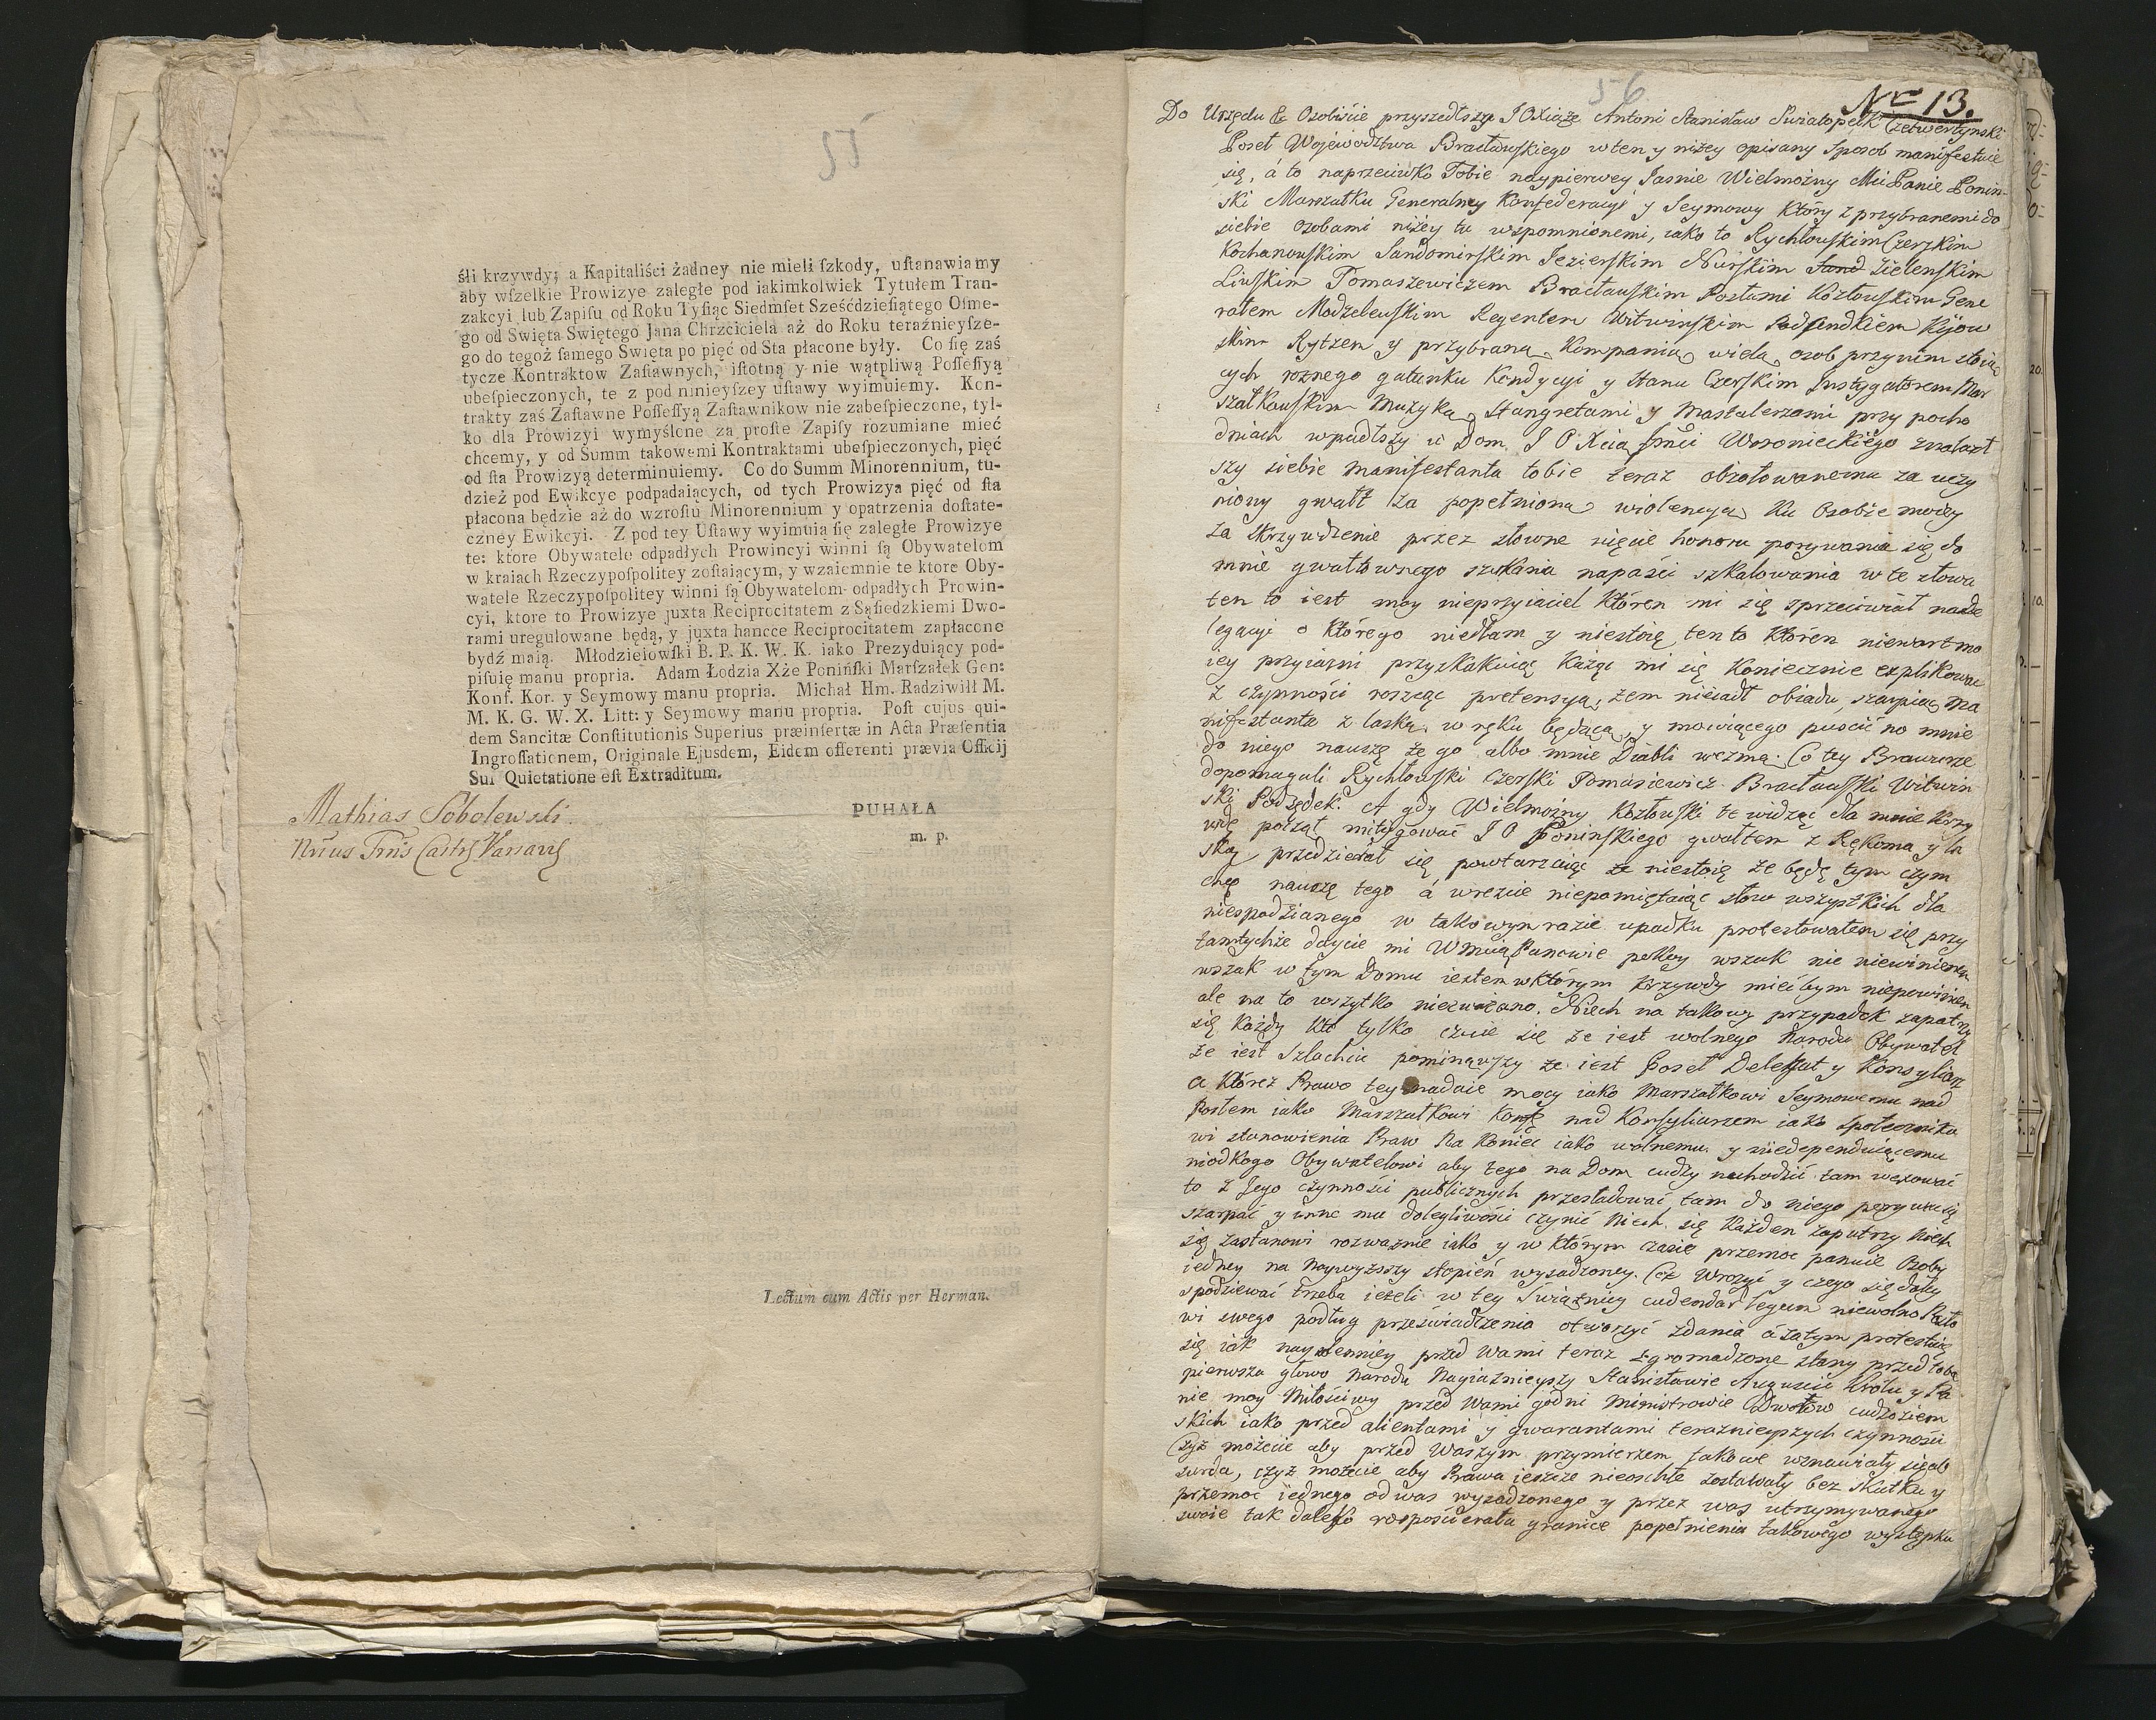 55
śli krzywdy; a Kapitaliści żadney nie mieli ſzkody, uſtanawiamy
aby wſzelkie Prowizye zaległe pod iakimkolwiek Tytułem Tran-
zakcyi lub Zapiſu od Roku Tyſiąc Siedmſet Sześćdzieſiątego Oſme-
go od Swięta Swiętego Jana Chrzciciela aż do Roku teraźnieyſze-
go do tegoż ſamego Swięta po pięć od Sta płacone były. Co ſię zaś
tycze Kontraktow Zaſtawnych, iſtotną y nie wątpliwą Poſſeſſyą
ubeſpieczonych, te z pod ninieyſzey uſtawy wyimuiemy. Kon-
trakty zaś Zaſtawne Poſſeſſyą Zaſtawnikow nie zabeſpieczone, tyl-
ko dla Prowizyi wymyślone za proſte Zapiſy rozumiane mieć
chcemy, y od Summ takowemi Kontraktami ubeſpieczonych, pięć
od ſta Prowizyą determinuiemy. Co do Summ Minorennium, tu-
dzież pod Ewikcye podpadaiących, od tych Prowizya pięć od ſta
płacona będzie aż do wzroſtu Minorennium y opatrzenia doſtate-
czney Ewikcyi. Z pod tey Uſtawy wyimuią ſię zaległe Prowizye
te: ktore Obywatele odpadłych Prowincyi winni ſą Obywatelom
w kraiach Rzeczypoſpolitey zoſtaiącym, y wzaiemnie te ktore Oby-
watele Rzeczypoſpolitey winni ſą Obywatelom odpadłych Prowin-
cyi, ktore to Prowizye juxta Reciprocitatem z Sąſiedzkiemi Dwo-
rami uregulowane będą, y juxta hancce Reciprocitatem zapłacone
bydź maią. Młodzieiowſki B. P. K. W. K. iako Prezyduiący pod-
piſuię manu propria. Adam Łodzia Xże Poniński Marſzałek Gen:
Konf. Kor. y Seymowy manu propria. Michał Hm. Radziwiłł M.
M. K. G. W. X. Litt: y Seymowy manu propria. Poſt cujus qui-
dem Sancitæ Conſtitutionis Superius præinſertæ in Acta Præſentia
Ingroſſationem, Originale Ejusdem, Eidem offerenti prævia Officij
Sui Quietatione eſt Extraditum.
Mathias Sobolewski
PUHAŁA
m. p.
Lectum cum Actis per Herman.
56
Nro 13.
Do Urzędu &c Osobiście przyszedłszy J O Xiąże Antoni Stanisław Swiatopełk Czetwertynski
Poseł Wojewodztwa Bracławskiego w ten y niżey opisany sposob manifestuie
się, á to naprzeciwko Tobie naypierwey Jasnie Wielmożny Mci Panie Ponin-
ski Marszałku Generalney Konfederacyi y Seymowy który z przybranemi do
siebie osobami niżey tu wspomnionemi, iako to Rychłowskim Czerskim
Kochanowskim Sandomirskim Jezierskim Nurskim Zielenskim
Liwskim Tomaszewiczem Bracławskim Posłami Kozłowskim Gene
rałem Modzelewskim Regentem Witwinskim Podsendkiem Kijow
skim Rytzem y przybraną Kompanią wielą osob przy nim stoią
cych rożnego gatunku Kondycyi y Stanu Czerskim Instygatorem Mar
szałkowskim Muzyką Stangretami y Mastalerzami przy pocho
dniach wpadłszy w Dom J O Xcia Jmci Woronieckiego znalazł
szy siebie manifestanta tobie teraz obżałowanemu za uczy
niony gwałt za popełnioną wiolencyą ku Osobie moiey
za skrzywdzenie przez słowne nięcie honoru porywania się do
mnie gwałtownego szukania napaści szkalowania w te słowa
ten to iest moy nieprzyiaciel któren mi się sprzeciwiał na de
legacyi o którego niedbam y niestoię ten to któren niewart mo
iey przyiazni przyskakuiąc każąc mi się koniecznie explikować
z czynności rosząc pretensyą, żem nieiadł obiadu, szarpiąc ma
nifestanta z laską w ręku będącą, y mowiącego puscić no mnie
do niego nauszę że go albo mnie Diabli wezmą. Co tey Brawurze
dopomagali Rychłowski Czerski Tomasiewicz Bracławski Witwin
ski Podsędek. A gdy Wielmożny Kozłowski te widząc dla mnie krzy
wdę począł mitygować J O Poninskiego gwałtem z Rękoma y la
ską przedzierał się powtarzaiąc że niestoię że będę tym czym
chcę nauszę tego á wrezcie niepamiętaiąc słow wszystkich dla
niespodzianego w takowym razie upadku protestowałem się przy
tamtychże daycie mi Wmcia Panowie pokoy wszak nic niewinienem
wszak w tym Domu iestem w którym krzywdy mieć bym niepowinien
ale na to wszytko nieuważano. Niech na takowy przypadek zapatrzy
się każdy kto tylko czuie się że iest wolnego Narodu Obywatel
że iest Szlachcic pominąwszy że iest Poseł Delegat y Konsyliarz
a któreż Prawo tey nadaie mocy iako Marszałkowi Seymowemu nad
Posłem iako Marszałkowi Konf nad Konsyliarzem iako społecznika
wi stanowienia Praw na koniec iako wolnemu y niedependuiącemu
niodkogo Obywatelowi aby tego na Dom cudzy nachodzić tam wexować
to z Jego czynności publicznych przesladować, tam do niego porywać się
szarpać y inne mu dolegliwości czynić Niech się Każden zapatrzy Niech
się zastanowi rozważnie iako y w którym czasie przemoc panuie Osoby
iedney na Naywyższy stopień wysadzoney. Coż Wrożyć y czego się daley
spodziewać trzeba ieżeli w tey Swiątnicy cudendar legum niewolno Posło
wi swego podług przeswiadczenia otworzyć zdania á zatym protestuię
się iak naysolenniey przed Wami teraz zgromadzone stany przed tobą
pierwsza głowo Narodu Nayiaśnieyszy Stanisławie Auguscie Królu y Pa
nie moy Miłościwy przed Wami godni Ministrowie Dworów cudzoziem
skich iako przed alientami y gwarantami teraznieyszych czynności
Czyż możecie aby przed Waszym przymierzem takowe wznawiały się ab
surda, czyż możecie aby Prawa ieszcze nieoschłe zostawały bez skutku y
przemoc iednego od was wysadzonego y przez was utrzymywanego
swoie tak daleko rosposcierała granice popełnienia takowego występku